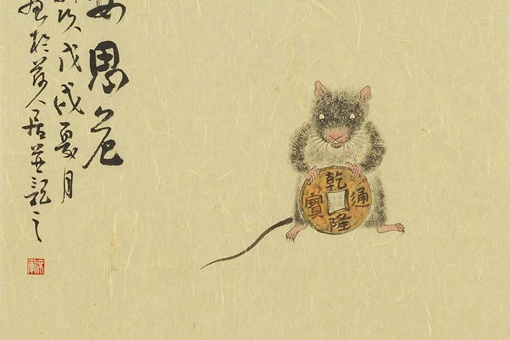 安思危
次戊戌夏月
於人居並記之
乾隆通寶